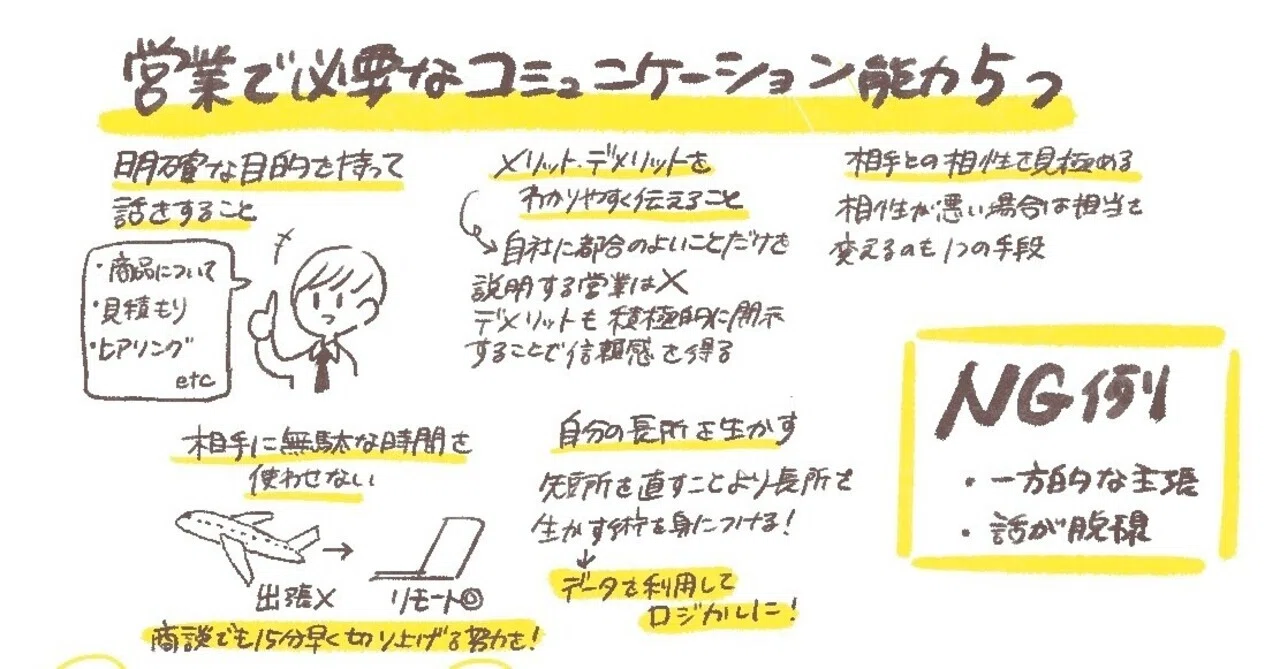 営業で必要なコミュニケーション能力5つ
明確な目的を持って
話をすること
・商品について
・見積もり
・ヒアリング
etc
メリット・デメリットを
わかりやすく伝えること
自社に都合のよいことだけを
説明する営業は×
デメリットも積極的に開示
することで信頼感を得る
相手との相性を見極める
相性が悪い場合は担当を
変えるのも1つの手段
相手に無駄な時間を
使わせない
出張× リモート◎
商談でも15分早く切り上げる努力を!
自分の長所を生かす
短所を直すことより長所を
生かす術を身につける!
データを利用して
ロジカルに!
NG例
・一方的な主張
・話が脱線